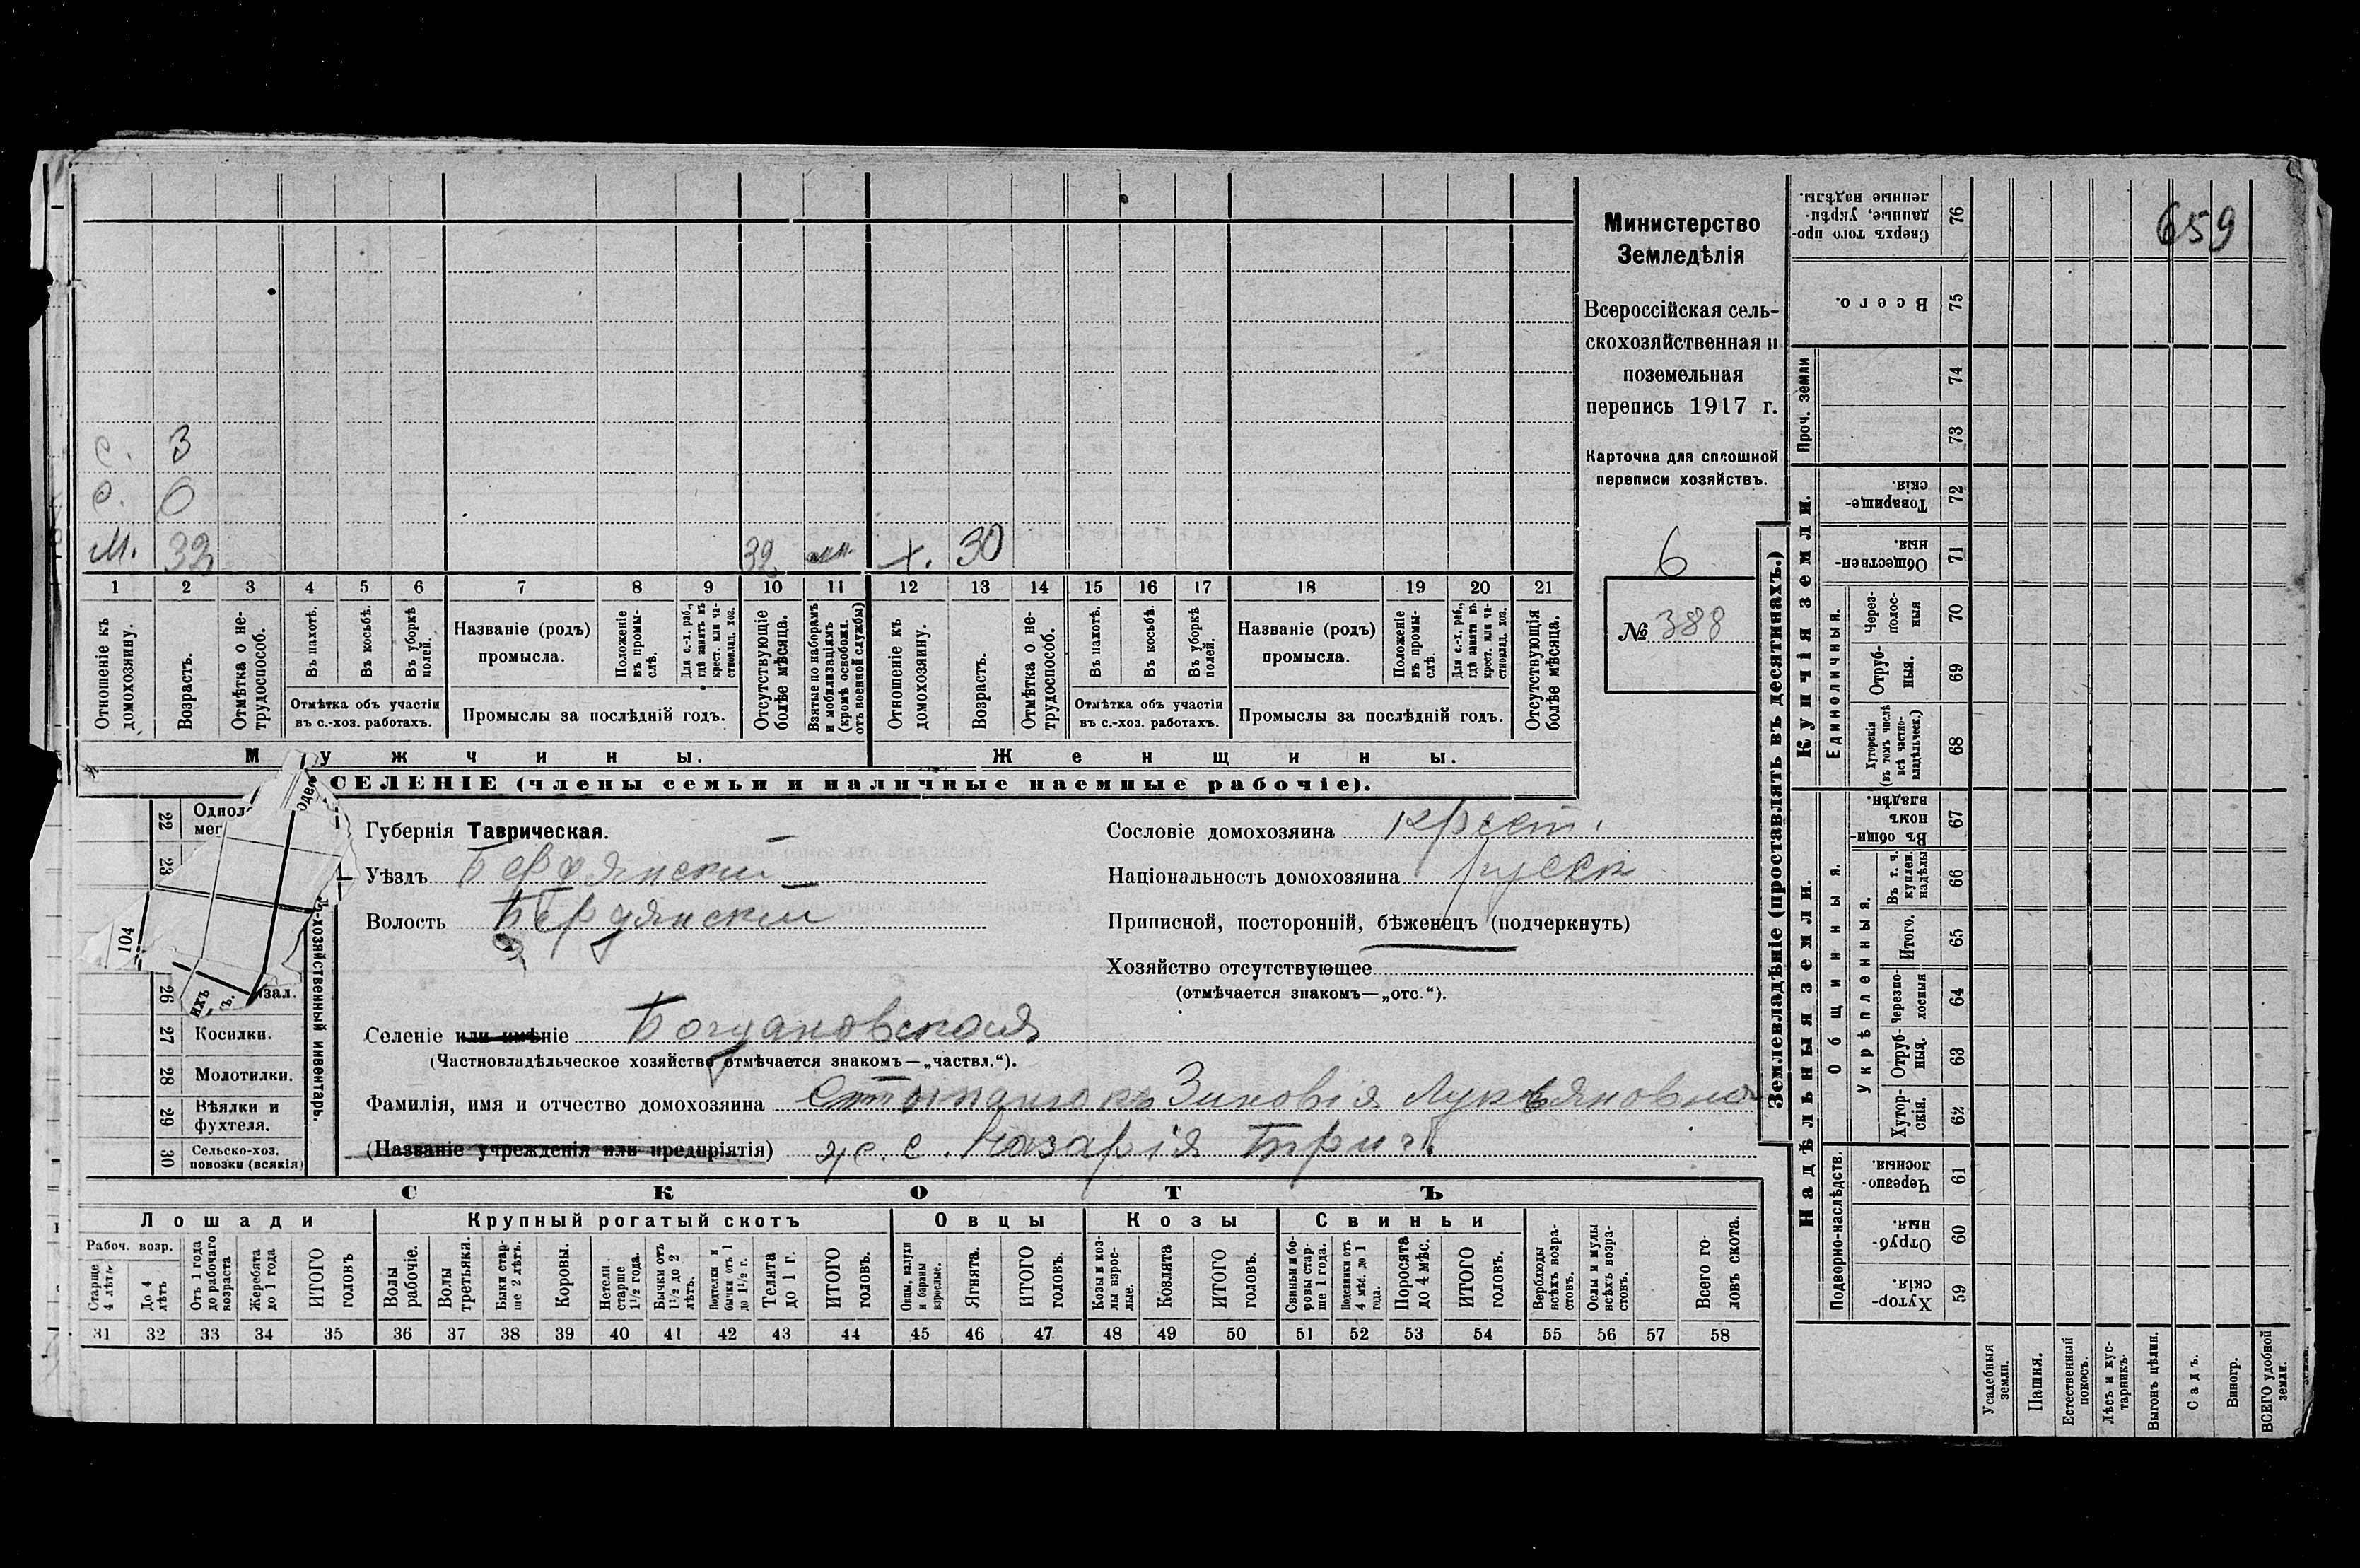 659
Министерство
Земледѣлія
Всероссійская сель-
скохозяйственная и
поземельная
перепись 1917 г.
Карточка для сплошной
переписи хозяйствъ.
6
№ 388
с. 3
с. 0
м. 32 32 х. 30
1 2 3 4 5 6 7 8 9 10 11 12 13 14 15 16 17 18 19 20 21
Отношеніе къ домохозяину.
Возрастъ.
Отмѣтка о не-трудоспособ.
Въ пахотѣ.
Въ косьбѣ.
Въ уборкѣ полей.
Отмѣтка объ участіи
въ с.-хоз. работахъ.
Названіе (родъ)
промысла.
Положеніе въ промы-слѣ.
Для с.-х. раб., гдѣ занятъ въ крест. или ча-стновлад. хоз.
Промыслы за послѣдній годъ.
Отсутствующіе болѣе мѣсяца.
Взятые по наборамъ и мобилизаціямъ (кромѣ освобожд. отъ военной службы)
Отношеніе къ домохозяину.
Возрастъ.
Отмѣтка о не-трудоспособ.
Въ пахотѣ.
Въ косьбѣ.
Въ уборкѣ полей.
Отмѣтка объ участіи
въ с.-хоз. работахъ.
Названіе (родъ)
промысла.
Положеніе въ промы-слѣ.
Для с.-х. раб., гдѣ занята въ крест. или ча-стновлад. хоз.
Промыслы за послѣдній годъ.
Отсутствующія болѣе мѣсяца.
Мужчины. Женщины.
СЕЛЕНІЕ (члены семьи и наличные наемные рабочіе).
22
23
104
26
27 Косилки.
28 Молотилки.
29 Вѣялки и
фухтеля.
30 Сельско-хоз.
повозки (всякія)
-хозяйственный инвентарь.
Губернія Таврическая.
Уѣздъ Бердянский
Волость Бердянский
Селеніе или имѣніе Богдановская
(Частновладѣльческое хозяйство отмѣчается знакомъ—„частвл.“).
Фамилія, имя и отчество домохозяина Зиновія Лукьяновна
(Названіе учрежденія или предпріятія) Назарія
Сословіе домохозяина крест.
Національность домохозяина русск
Приписной, посторонній, бѣженецъ (подчеркнуть)
Хозяйство отсутствующее
(отмѣчается знакомъ—„отс.“).
СКОТЪ
Лошади Крупный рогатый скотъ Овцы Козы Свиньи
Рабоч. возр.
Старше 4 лѣтъ
До 4 лѣтъ
Отъ 1 года до рабочаго возраста
Жеребята до 1 года
ИТОГО головъ
Волы рабочіе.
Волы третьяки.
Быки стар-ше 2 лѣтъ.
Коровы.
Нетели старше 1½ года.
Бычки отъ 1½ до 2 лѣтъ.
Подтелки и бычки отъ 1 до 1½ г.
Телята до 1 г.
ИТОГО головъ.
Овцы, валухи и бараны взрослые.
Ягнята.
ИТОГО головъ.
Козы и коз-лы взрос-лые.
Козлята
ИТОГО головъ.
Свиньи и бо-ровы стар-ше 1 года.
Подсвинки отъ 4 мѣс. до 1 года.
Поросята до 4 мѣс.
ИТОГО головъ.
Верблюды всѣхъ возра-стовъ.
Ослы и мулы всѣхъ возра-стовъ.
Всего го-ловъ скота.
31 32 33 34 35 36 37 38 39 40 41 42 43 44 45 46 47 48 49 50 51 52 53 54 55 56 57 58
Землевладѣніе (проставлять въ десятинахъ.)
Купчія земли.
Надѣльныя земли.
Сверхъ того про-данные, укрѣп-ленные надѣлы. 76
Всего. 75
Проч. земли
74
73
Товарище-скія. 72
Обществен-ныя. 71
Единоличныя.
Через-полос-ныя 70
Отруб-ныя. 69
Хуторскія (въ томъ числѣ всѣ частно-владѣльческ.) 68
Общинныя.
Въ общин-номъ владѣн. 67
Укрѣпленныя.
Въ т. ч. куплен. надѣлы 66
Итого. 65
Черезпо-лосныя 64
Отруб-ныя. 63
Хутор-скія. 62
Подворно-наслѣдств.
Черезпо-лосныя. 61
Отруб-ныя. 60
Хутор-скія. 59
Усадебныя земли.
Пашня.
Естественный покосъ.
Лѣсъ и кус-тарникъ.
Выгонъ цѣлин.
Садъ.
Виногр.
ВСЕГО удобной земли.